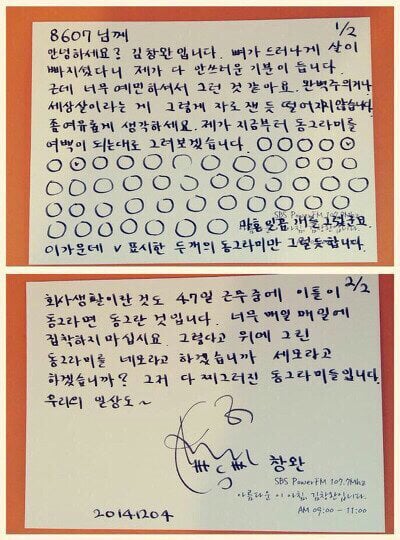 8607님께
1/2
안녕하세요? 김창완입니다. 뼈가 드러나게 살이
빠지셨다니 제가 다 안쓰러운 기분이 듭니다.
근데 너무 예민하셔서 그런 것 같아요. 완벽주의거나
세상살이라는 게 그렇게 자로 잰 듯 떨어지지않습니다
좀 여유롭게 생각하세요. 제가 지금부터 동그라미를
여백이 되는대로 그려보겠습니다.
SBS PowerFM 107.7Mhz
마흔일곱 개를 그렸군요.
이 가운데 v 표시한 두개의 동그라미만 그럴듯합니다.
2/2
회사생활이란 것도 47일 근무 중에 이틀이
동그라면 동그란 것입니다. 너무 매일 매일에
집착하지 마십시요. 그렇다고 위에 그린
동그라미를 네모라고 하겠습니까 세모라고
하겠습니까? 그저 다 찌그러진 동그라미들입니다.
우리의 일상도~
창완
SBS PowerFM 107.7Mhz
아름다운 이 아침, 김창완입니다.
AM 09:00 - 11:00
20141204